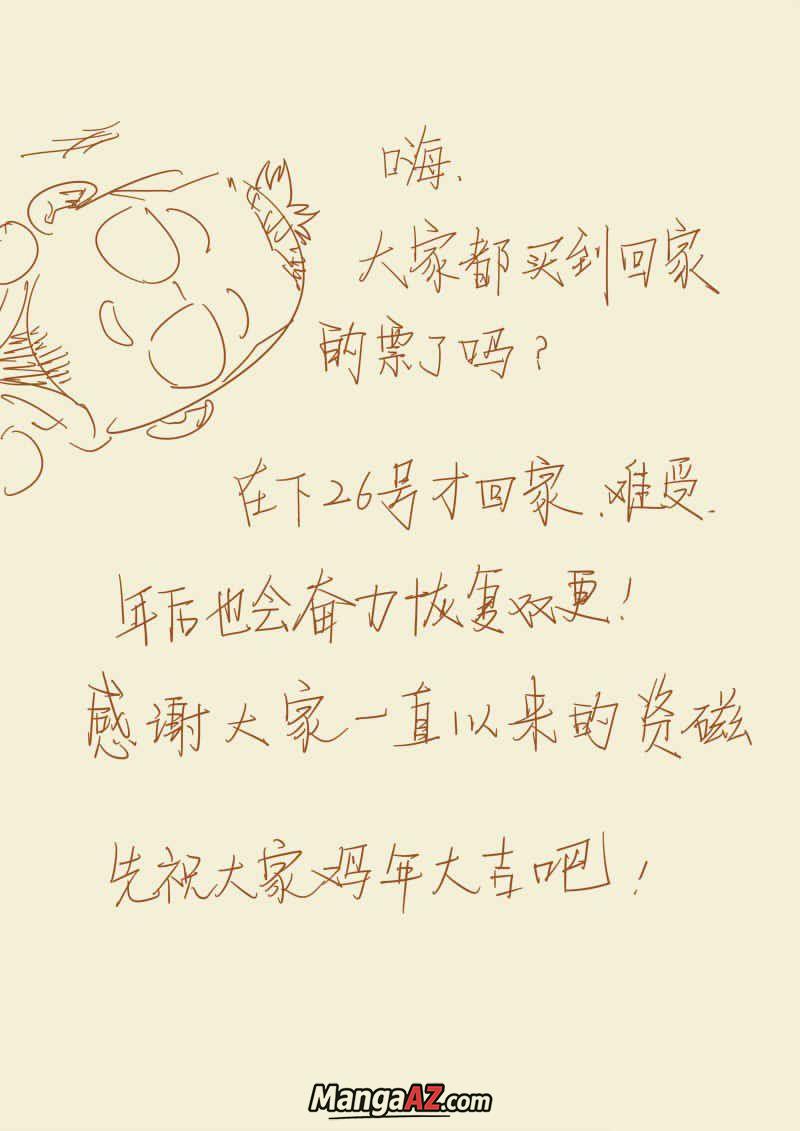 嗨.
大家都买到回家
的票了吗?
在下26号才回家.难受.
年后也会奋力恢复双更!
感谢大家一直以来的资磁
先祝大家鸡年大吉吧!
MangaAZ.com